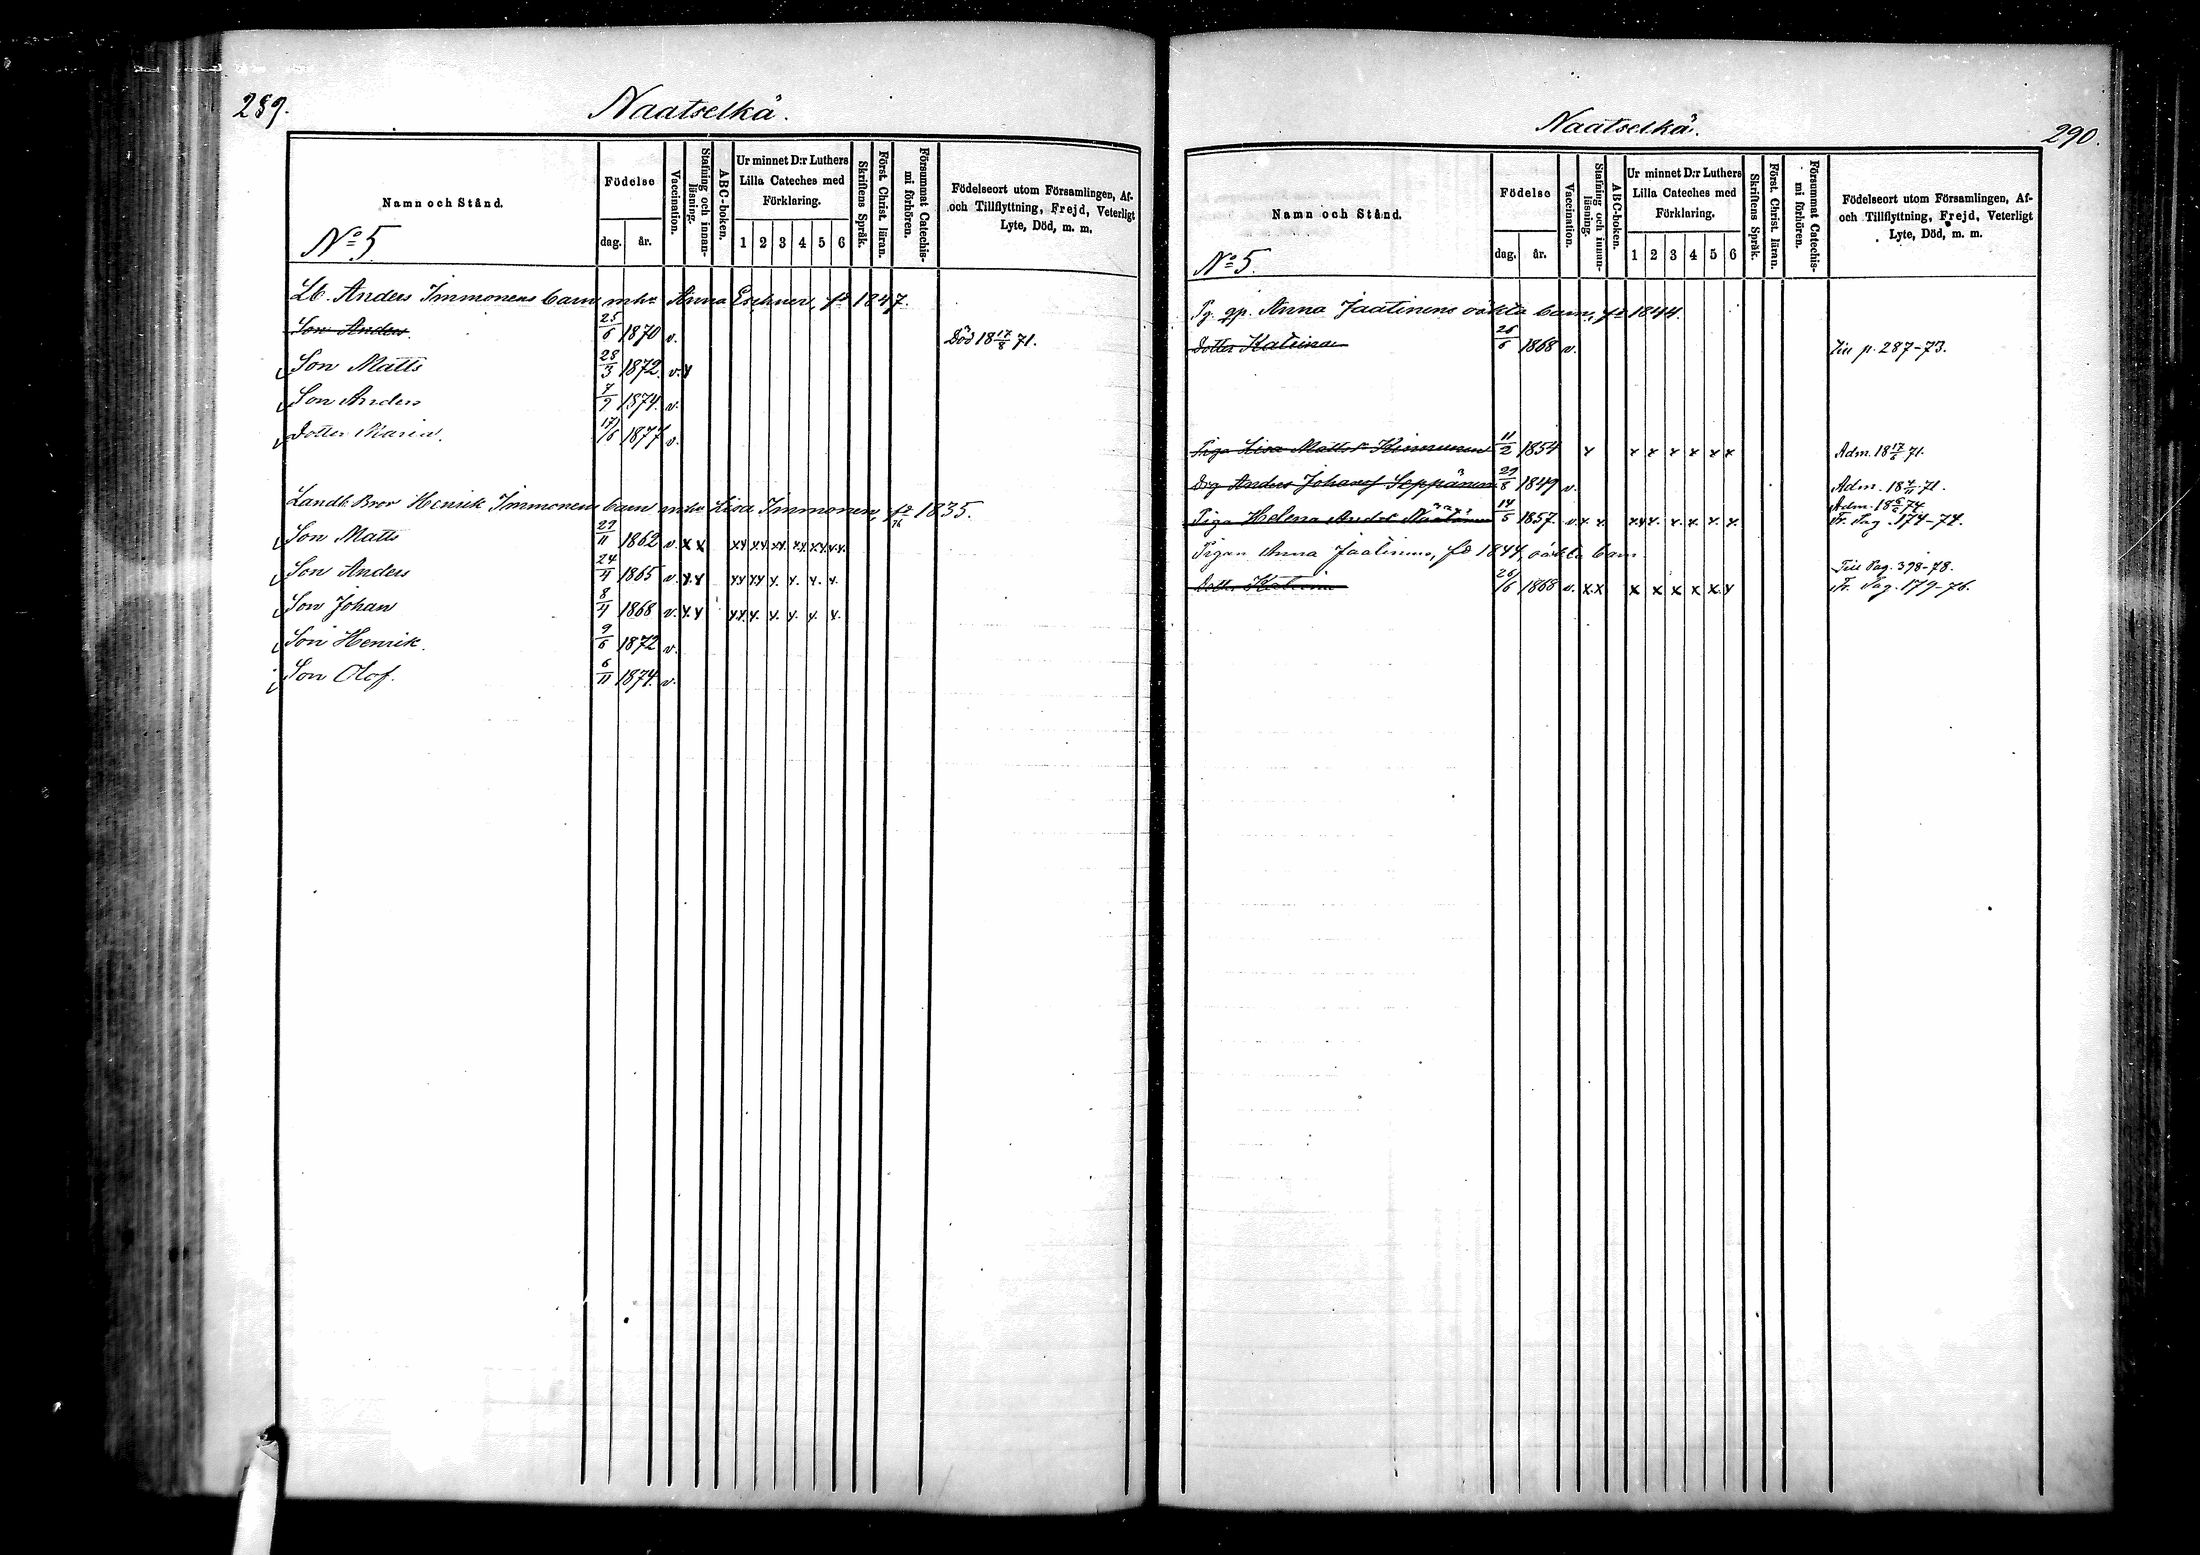 289.
Naatselkä.
Namn och Stånd.
Födelse
dag.
år.
Vaccination.
Stafning och innan-läsning.
ABC-boken.
Ur minnet D:r Luthers Lilla Cateches med Förklaring.
1 2 3 4 5 6
Skriftens Språk.
Först. Christ. läran.
Försummat Catechis-mi förhören.
Födelseort utom Församlingen, Af- och Tillflyttning, Frejd, Veterligt Lyte, Död, m. m.
No 5.
Lb. Anders Immonens barn mhu Anna Eschner, fd 1847.
Son Anders. 25/6 1870 v. Död 18 17/8 71.
Son Matts 28/3 1872. v. x
Son Anders 7/9 1874. v.
Dotter Maria. 17/6 1877 v.
Landb. Bror Henrik Immonens barn mhu Lisa Immonen, fd 1835.
Son Matts 29/11 1862 v. x x xx xx. xx. xx xx x.x.
Son Anders 24/4 1865 v. x.x xx xx x. x. x. x.
Son Johan 8/4 1868 v. x.x xx x. x. x. x. x.
Son Henrik. 9/6 1872 v.
Son Olof. 6/11 1874. v.
Naatselkä.
290.
Namn och Stånd.
Födelse
dag.
år.
Vaccination.
Stafning och innan-läsning.
ABC-boken.
Ur minnet D:r Luthers Lilla Cateches med Förklaring.
1 2 3 4 5 6
Skriftens Språk.
Först. Christ. läran.
Försummat Catechis-mi förhören.
Födelseort utom Församlingen, Af- och Tillflyttning, Frejd, Veterligt Lyte, Död, m. m.
No 5.
Pg. qp. Anna Jaatinens oäkta barn, fd 1844.
Dotter Katrina 26/6 1868 v. Till p. 287-73.
Piga Lisa Mattsd Kinnunen 11/2 1854 x x x x x x x Adm. 18 17/6 71.
Drg Anders Johansf Seppänen 29/8 1849 v. Adm. 18 4/11 71.
Adm. 18 6/6 74.
Piga Helena Andsd 14/5 1857. v. x. x. xx x. x. x. x. x. Fr. Pag. 174-74.
Pigan Anna Jaatinens, fd 1844, oäkta barn
Till Pag. 398-78.
Dottr Katrina 26/6 1868 v. x.x x x x x x. x Fr. Pag. 179-76.